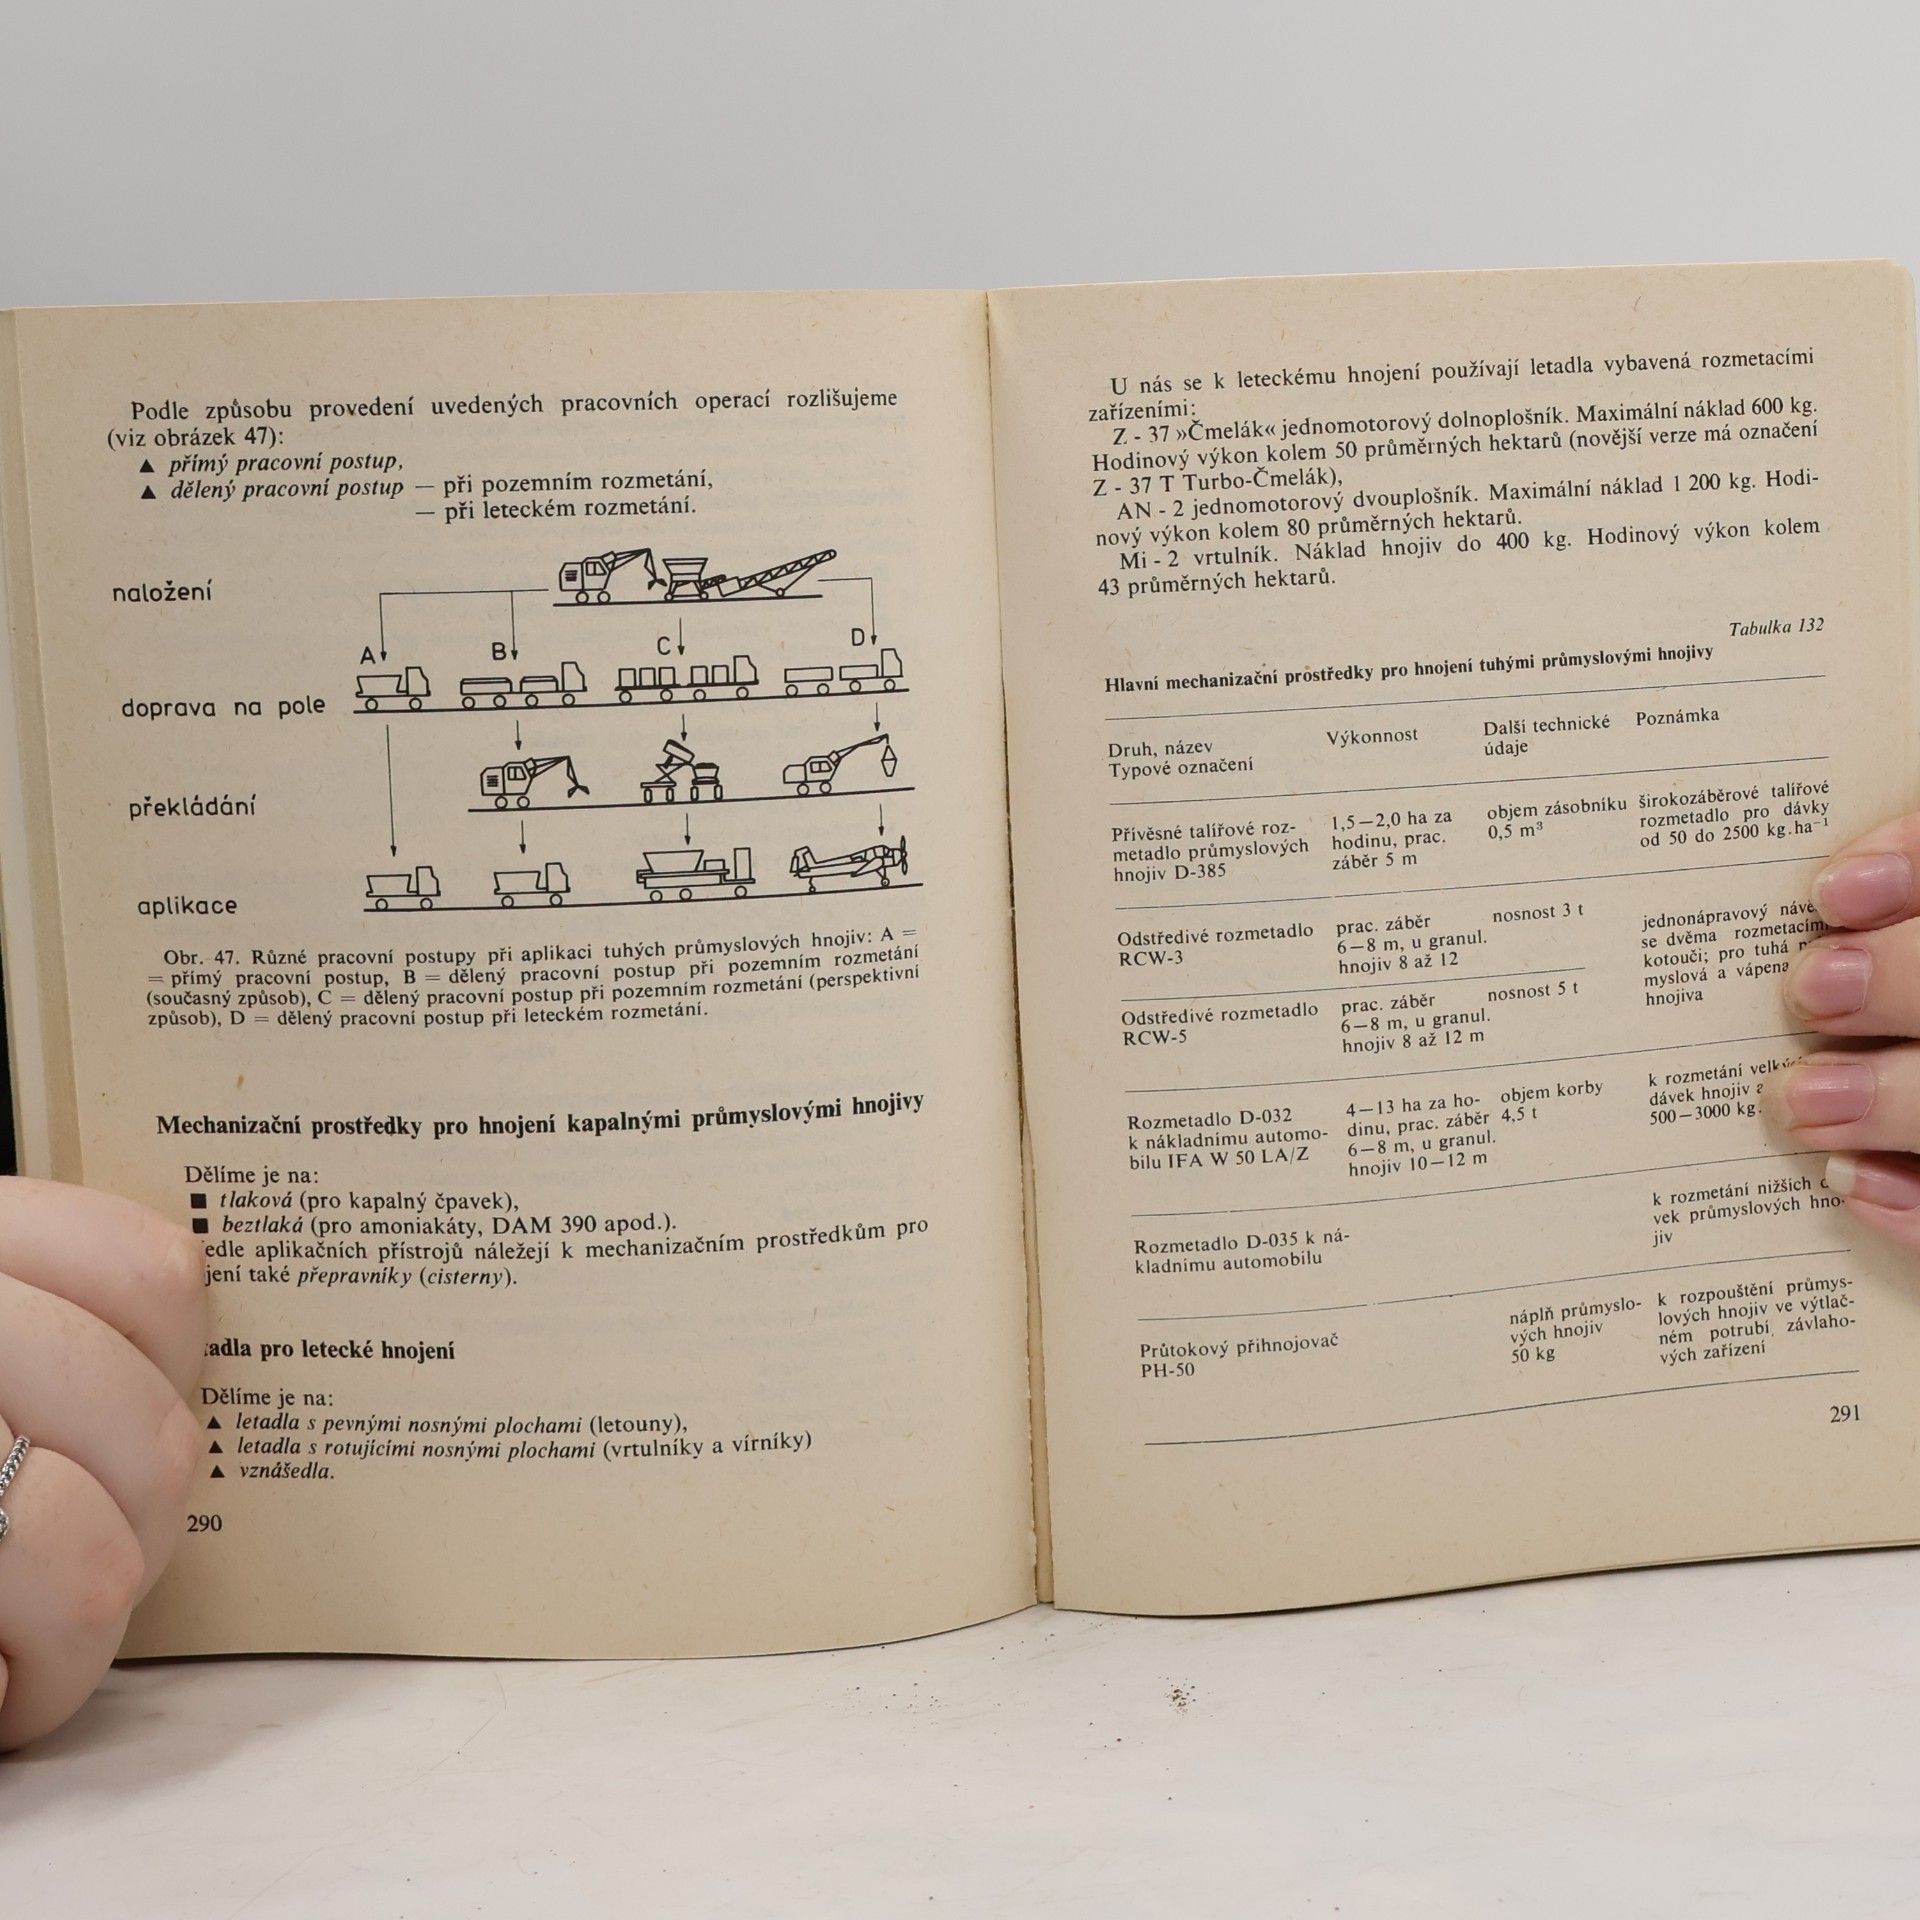 Podle způsobu provedení uvedených pracovních operací rozlišujeme
(viz obrázek 47):
▲ přímý pracovní postup,
▲ dělený pracovní postup — při pozemním rozmetání,
— při leteckém rozmetání.
naložení
A B C D
doprava na pole
překládání
aplikace
Obr. 47. Různé pracovní postupy při aplikaci tuhých průmyslových hnojiv: A =
= přímý pracovní postup, B = dělený pracovní postup při pozemním rozmetání
(současný způsob), C = dělený pracovní postup při pozemním rozmetání (perspektivní
způsob), D = dělený pracovní postup při leteckém rozmetání.
Mechanizační prostředky pro hnojení kapalnými průmyslovými hnojivy
Dělíme je na:
■ tlaková (pro kapalný čpavek),
■ beztlaká (pro amoniakáty, DAM 390 apod.).
edle aplikačních přístrojů náležejí k mechanizačním prostředkům pro
jení také přepravníky (cisterny).
adla pro letecké hnojení
Dělíme je na:
▲ letadla s pevnými nosnými plochami (letouny),
▲ letadla s rotujícími nosnými plochami (vrtulníky a vírníky)
▲ vznášedla.
290
U nás se k leteckému hnojení používají letadla vybavená rozmetacími
zařízeními:
Z - 37 »Čmelák« jednomotorový dolnoplošník. Maximální náklad 600 kg.
Hodinový výkon kolem 50 průměrných hektarů (novější verze má označení
Z - 37 T Turbo-Čmelák),
AN - 2 jednomotorový dvouplošník. Maximální náklad 1 200 kg. Hodi-
nový výkon kolem 80 průměrných hektarů.
Mi - 2 vrtulník. Náklad hnojiv do 400 kg. Hodinový výkon kolem
43 průměrných hektarů.
Tabulka 132
Hlavní mechanizační prostředky pro hnojení tuhými průmyslovými hnojivy
Druh, název
Typové označení
Výkonnost
Další technické
údaje
Poznámka
Přívěsné talířové roz-
metadlo průmyslových
hnojiv D-385
1,5—2,0 ha za
hodinu, prac.
záběr 5 m
objem zásobníku
0,5 m³
širokozáběrové talířové
rozmetadlo pro dávky
od 50 do 2500 kg.ha⁻¹
Odstředivé rozmetadlo
RCW-3
prac. záběr
6—8 m, u granul.
hnojiv 8 až 12
nosnost 3 t
jednonápravový návě
se dvěma rozmetacím
kotouči; pro tuhá
myslová a vápena
hnojiva
Odstředivé rozmetadlo
RCW-5
prac. záběr
6—8 m, u granul.
hnojiv 8 až 12 m
nosnost 5 t
Rozmetadlo D-032
k nákladnímu automo-
bilu IFA W 50 LA/Z
4—13 ha za ho-
dinu, prac. záběr
6—8 m, u granul.
hnojiv 10—12 m
objem korby
4,5 t
k rozmetání velký
dávek hnojiv a
500—3000 kg.
Rozmetadlo D-035 k ná-
kladnímu automobilu
k rozmetání nižších
vek průmyslových hno-
jiv
Průtokový přihnojovač
PH-50
náplň průmyslo-
vých hnojiv
50 kg
k rozpouštění průmys-
lových hnojiv ve výtlač-
ném potrubí závlaho-
vých zařízení
291